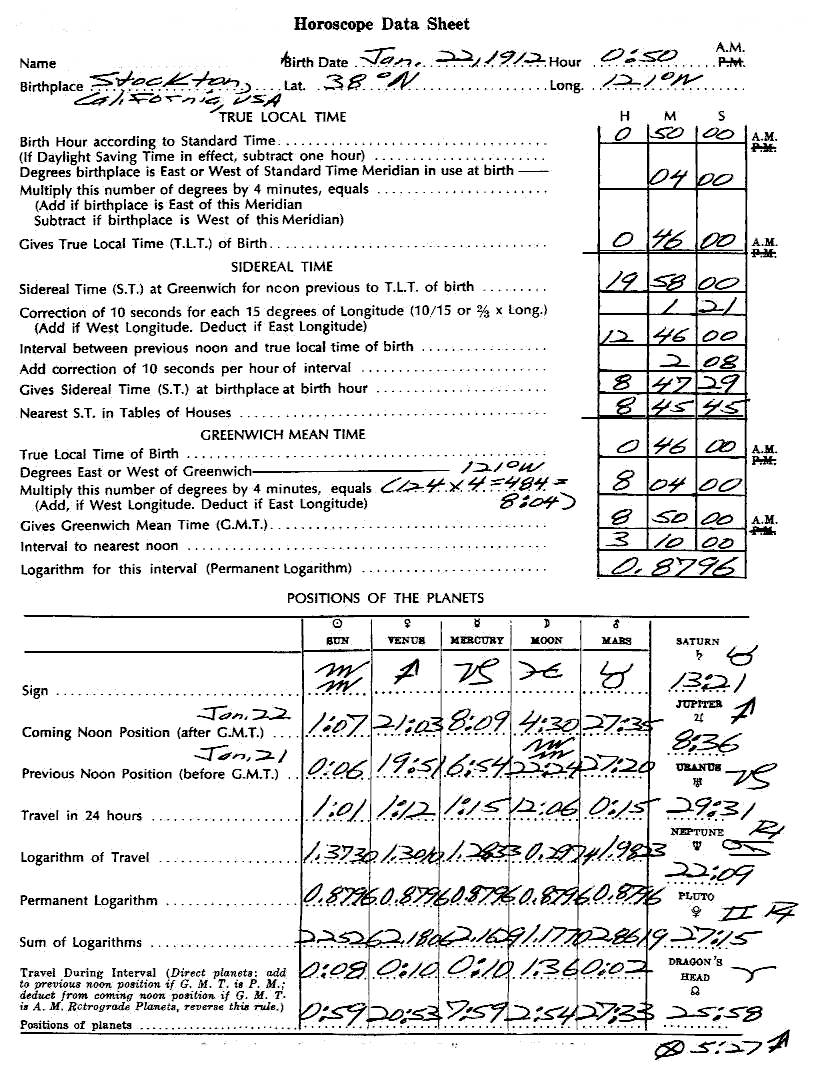 Horoscope Data Sheet
A.M.
Name Birth Date Jan. 22, 1912 Hour 0:50 P.M.
Birthplace Stockton, Lat. 38°N Long. 121°W
California, USA
TRUE LOCAL TIME H M S
Birth Hour according to Standard Time 0 50 00 A.M.
P.M.
(If Daylight Saving Time in effect, subtract one hour)
Degrees birthplace is East or West of Standard Time Meridian in use at birth
Multiply this number of degrees by 4 minutes, equals 04 00
(Add if birthplace is East of this Meridian
Subtract if birthplace is West of this Meridian)
Gives True Local Time (T.L.T.) of Birth 0 46 00 A.M.
P.M.
SIDEREAL TIME
Sidereal Time (S.T.) at Greenwich for noon previous to T.L.T. of birth 19 58 00
Correction of 10 seconds for each 15 degrees of Longitude (10/15 or ⅔ x Long.) 1 21
(Add if West Longitude. Deduct if East Longitude)
Interval between previous noon and true local time of birth 12 46 00
Add correction of 10 seconds per hour of interval 2 08
Gives Sidereal Time (S.T.) at birthplace at birth hour 8 47 29
Nearest S.T. in Tables of Houses 8 45 45
GREENWICH MEAN TIME
True Local Time of Birth 0 46 00 A.M.
P.M.
Degrees East or West of Greenwich 121°W
Multiply this number of degrees by 4 minutes, equals (124 x 4 = 484 = 8 04 00
(Add, if West Longitude. Deduct if East Longitude) 8:04)
Gives Greenwich Mean Time (G.M.T.) 8 50 00 A.M.
P.M.
Interval to nearest noon 3 10 00
Logarithm for this interval (Permanent Logarithm) 0.8796
POSITIONS OF THE PLANETS
☉ ♀ ☿ ☽ ♂
SUN VENUS MERCURY MOON MARS SATURN
♄ ♉
Sign ♒ ♐ ♑ ♓ ♉ 13:21
Jan. 22 JUPITER
Coming Noon Position (after G.M.T.) 1:07 21:03 8:09 4:30 27:35 ♃ ♐
8:36
Jan. 21 ♒ URANUS
Previous Noon Position (before G.M.T.) 0:06 19:51 6:54 22:24 27:20 ♅ ♑
Travel in 24 hours 1:01 1:12 1:15 12:06 0:15 29:31
NEPTUNE ℞
Logarithm of Travel 1.3730 1.3010 1.2833 0.2974 1.9823 ♆ ♋
22:09
Permanent Logarithm 0.8796 0.8796 0.8796 0.8796 0.8796 PLUTO
♀ ♊ ℞
Sum of Logarithms 2.2526 2.1806 2.1629 1.1770 2.8619 27:15
Travel During Interval (Direct planets: add 0:08 0:10 0:10 1:36 0:02 DRAGON'S
to previous noon position if G. M. T. is P. M.; HEAD ♈
deduct from coming noon position if G. M. T. ☊
is A. M. Retrograde Planets, reverse this rule.) 0:59 20:53 7:59 2:54 27:33 25:58
Positions of planets
⊗ 5:27 ♐